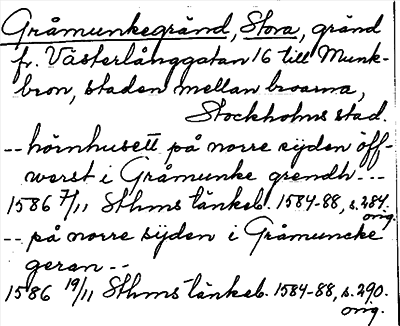 Gråmunkegränd, Stora, gränd
fr. Västerlånggatan 16 till Munk-
bron, staden mellan broarna,
Stockholms stad.
-- hörnhusett på norre sijden öff-
werst i Gråmunke grendh ---
1586 7/11 Sthms tänkeb. 1584-88, s. 284.
orig.
-- på norre sijden i Gråmuncke
geran --
1586 19/11 Sthms tänkeb. 1584-88, s. 290.
orig.